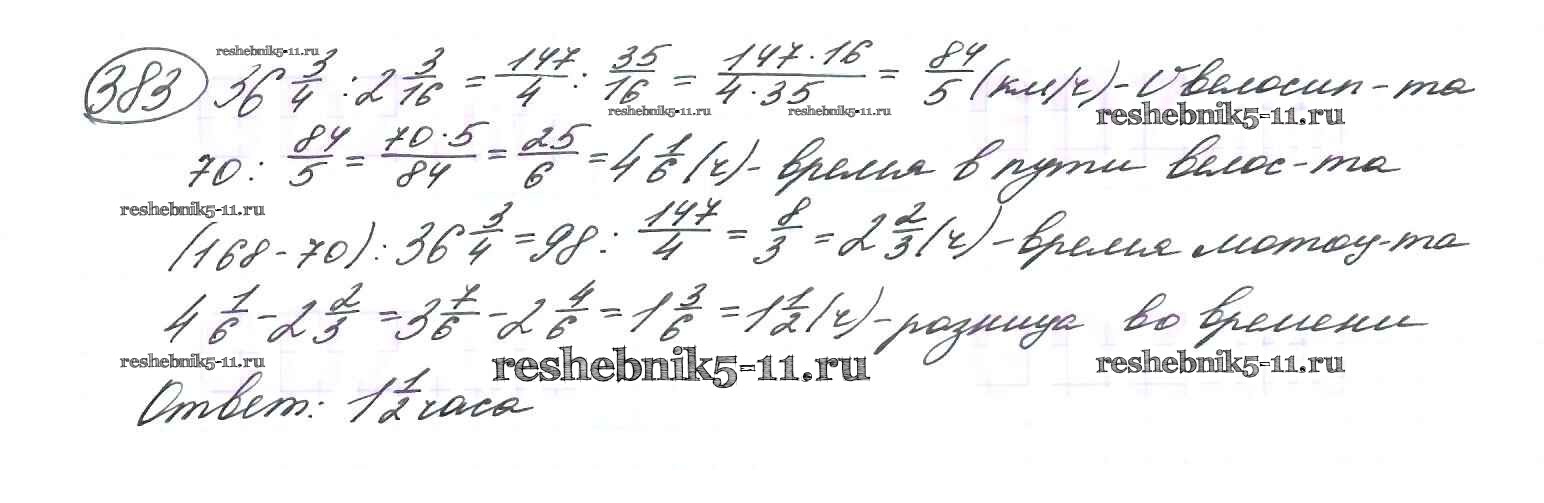 reshebnik5-11.ru
383 36 3/4 : 2 3/16 = 147/4 : 35/16 = 147·16/4·35 = 84/5 (км/ч) - V велосип-та
reshebnik5-11.ru reshebnik5-11.ru reshebnik5-11.ru
70 : 84/5 = 70·5/84 = 25/6 = 4 1/6 (ч) - время в пути велос-та
reshebnik5-11.ru
(168 - 70) : 36 3/4 = 98 : 147/4 = 8/3 = 2 2/3 (ч) - время мотоц-та
4 1/6 - 2 2/3 = 3 7/6 - 2 4/6 = 1 3/6 = 1 1/2 (ч) - разница во времени
reshebnik5-11.ru reshebnik5-11.ru reshebnik5-11.ru
Ответ: 1 1/2 часа